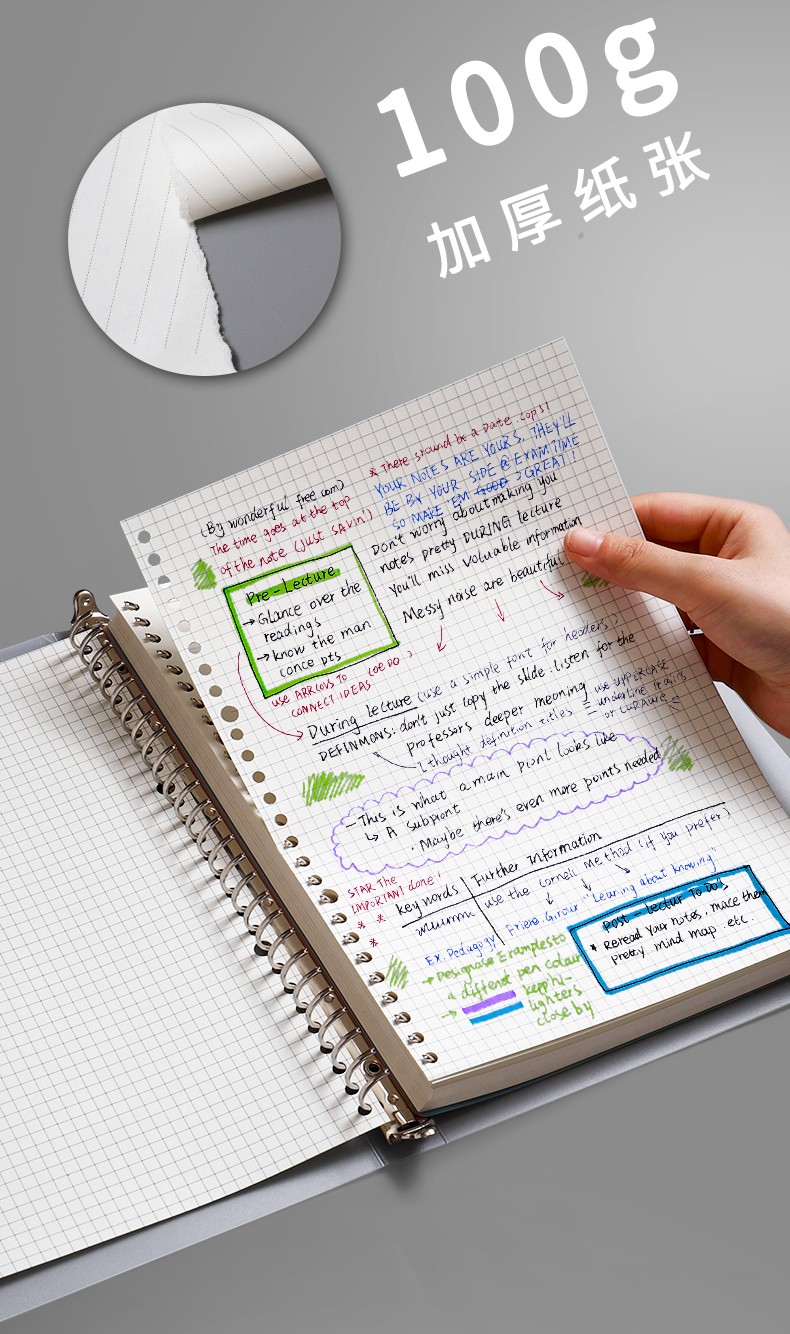 100g
加厚纸张
(By wonderful free com)
The time goes at the top
of the note (just SAvin!)
* There shound be a Date, cops!
YOUR NOTES ARE YOURS. THEY'LL
BE BY YOUR SIDE @ EXAM TIME
SO MAKE 'EM GOOD GREAT!
Don't worry about making you
notes pretty DURING lecture
You'll miss valuable information
Messy noise are beautiful
Pre-Lecture
→ Glance over the
readings
→ know the man
conce pts
use ARROWS TO
CONNECT IDEAS
During lecture (use a simple font for headers)
DEFINMONS: don't just copy the slide. listen for the
professors deeper meaning
use UPPERCASE
underline
or
thought definition titles
- This is what a main piont looks like
↳ A subpiont
· Maybe there's even more points needed
STAR The
IMPORTANT done!
* *
*
key words
Further Information
use the cornell method (if you prefer)
Ex. Pedagogy
"Learning about knowing"
→ Designase Examplesto
a differnt pen colour
→ kepphi-
lighters
close by
Post - lectur To Do's
* Reread Your notes, mace them
pretty, mind map. etc.